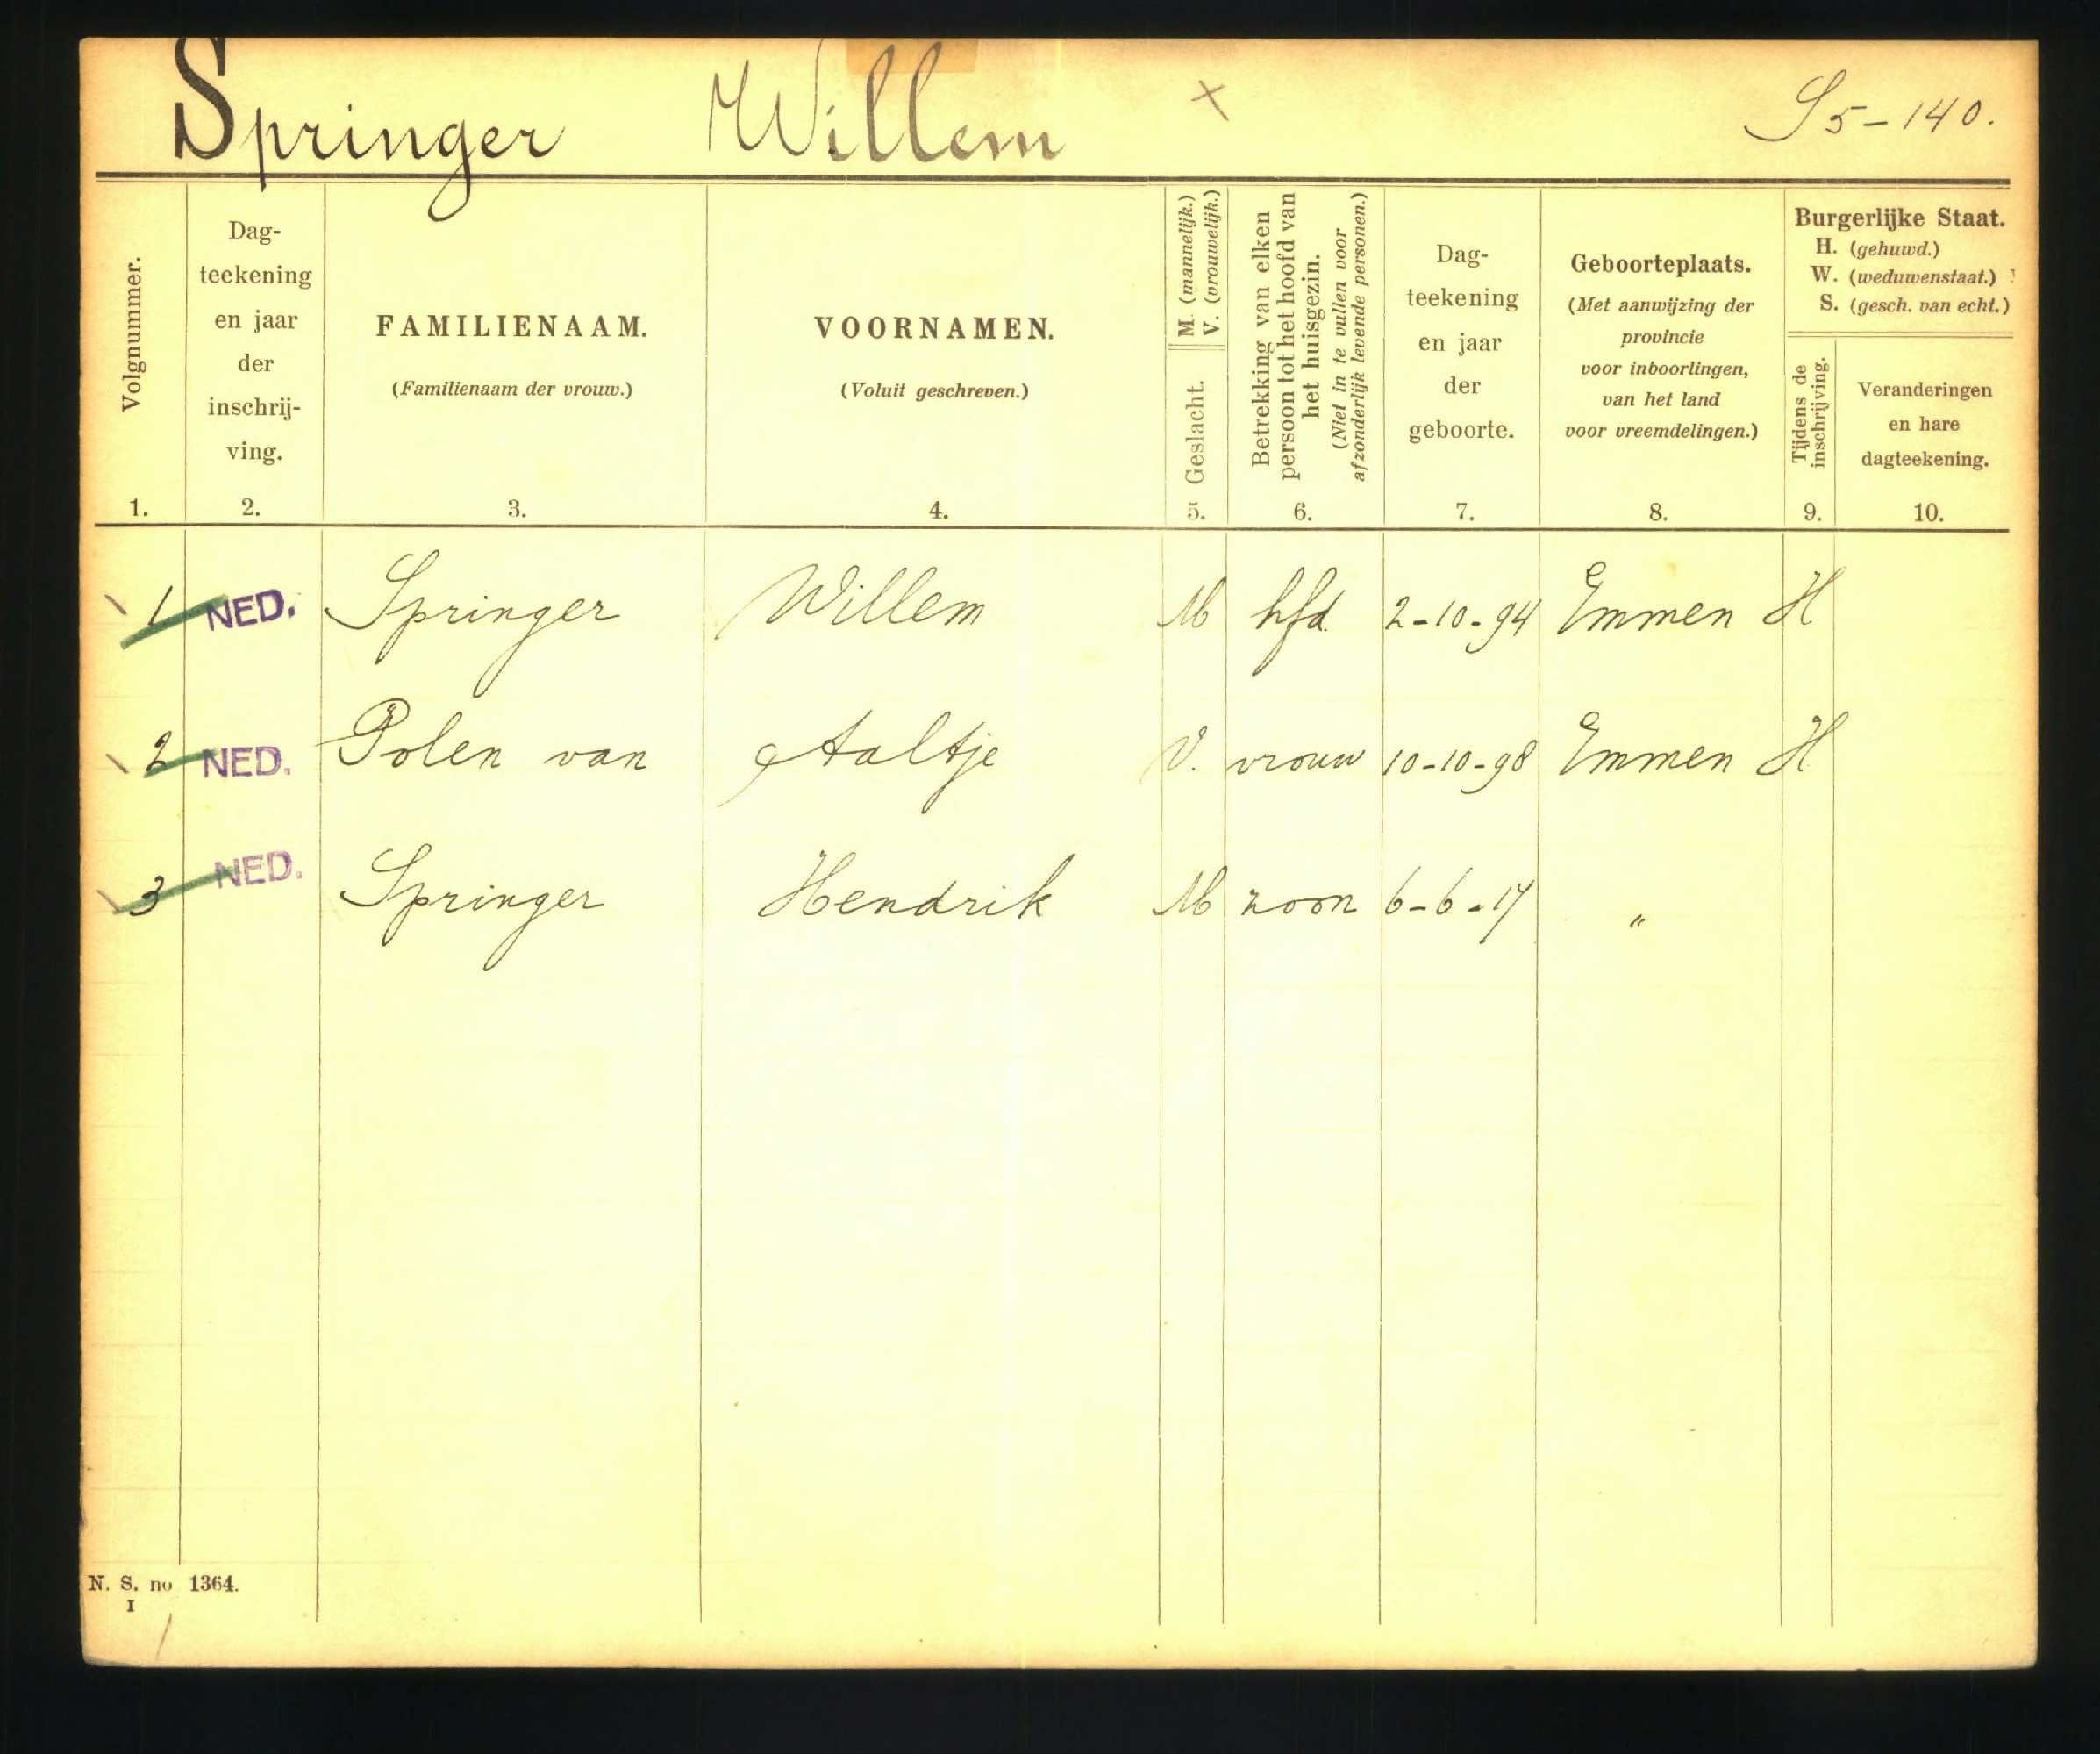 Springer Willem x S5-140.
Volgnummer.
1.
Dag-
teekening
en jaar
der
inschrij-
ving.
2.
FAMILIENAAM.
(Familienaam der vrouw.)
3.
VOORNAMEN.
(Voluit geschreven.)
4.
M. (mannelijk.)
V. (vrouwelijk.)
Geslacht.
5.
Betrekking van elken
persoon tot het hoofd van
het huisgezin.
(Niet in te vullen voor
afzonderlijk levende personen.)
6.
Dag-
teekening
en jaar
der
geboorte.
7.
Geboorteplaats.
(Met aanwijzing der
provincie
voor inboorlingen,
van het land
voor vreemdelingen.)
8.
Burgerlijke Staat.
H. (gehuwd.)
W. (weduwenstaat.)
S. (gesch. van echt.)
Tijdens de
inschrijving.
9.
Veranderingen
en hare
dagteekening.
10.
1 NED. Springer Willem M hfd. 2-10-94 Emmen H
2 NED. Polen van Aaltje V. vrouw 10-10-98 Emmen H
3 NED. Springer Hendrik M zoon 6-6-17 "
N. S. no 1364.
I